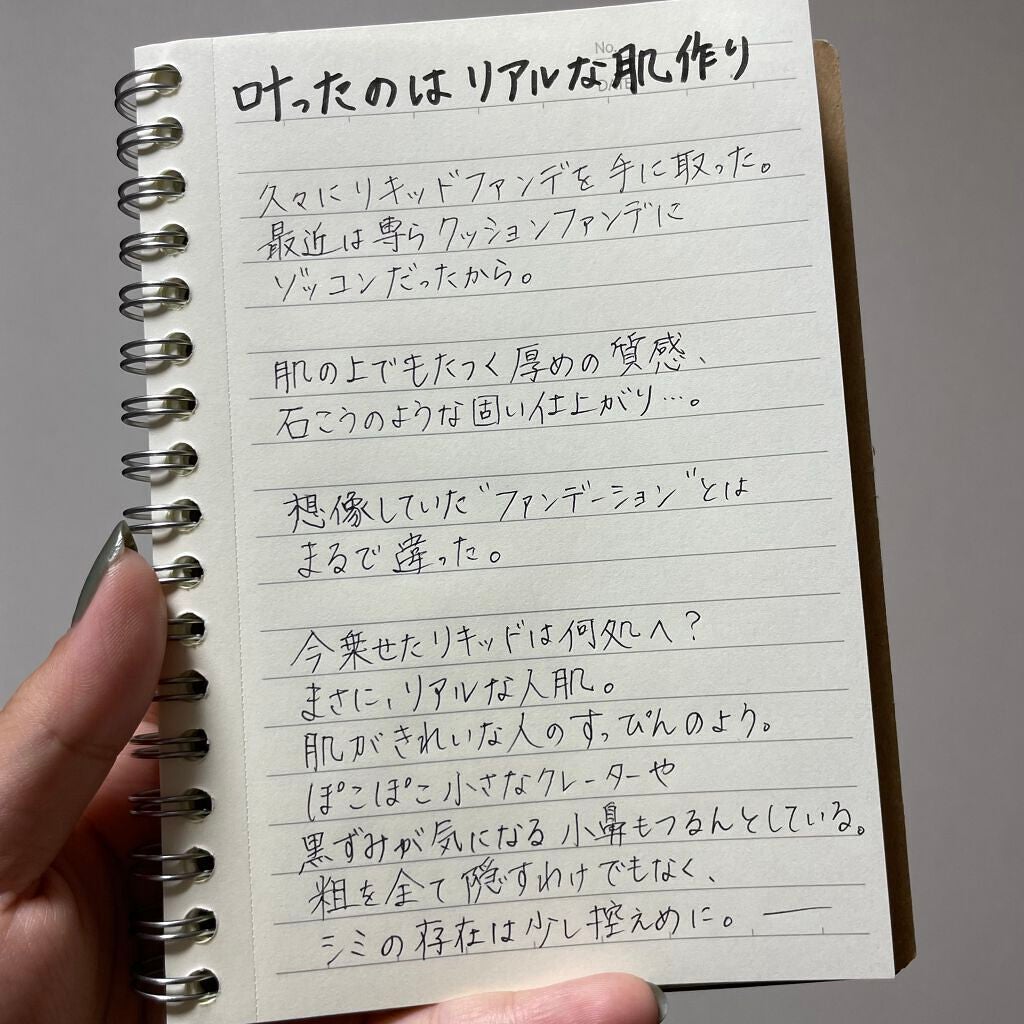 No.
DATE
叶ったのはリアルな肌作り
久々にリキッドファンデを手に取った。
最近は専らクッションファンデに
ゾッコンだったから。
肌の上でもたつく厚めの質感、
石こうのような固い仕上がり…。
想像していた"ファンデーション"とは
まるで違った。
今乗せたリキッドは何処へ?
まさに、リアルな人肌。
肌がきれいな人のすっぴんのよう。
ぽこぽこ小さなクレーターや
黒ずみが気になる小鼻もつるんとしている。
粗を全て隠すわけでもなく、
シミの存在は少し控えめに。――